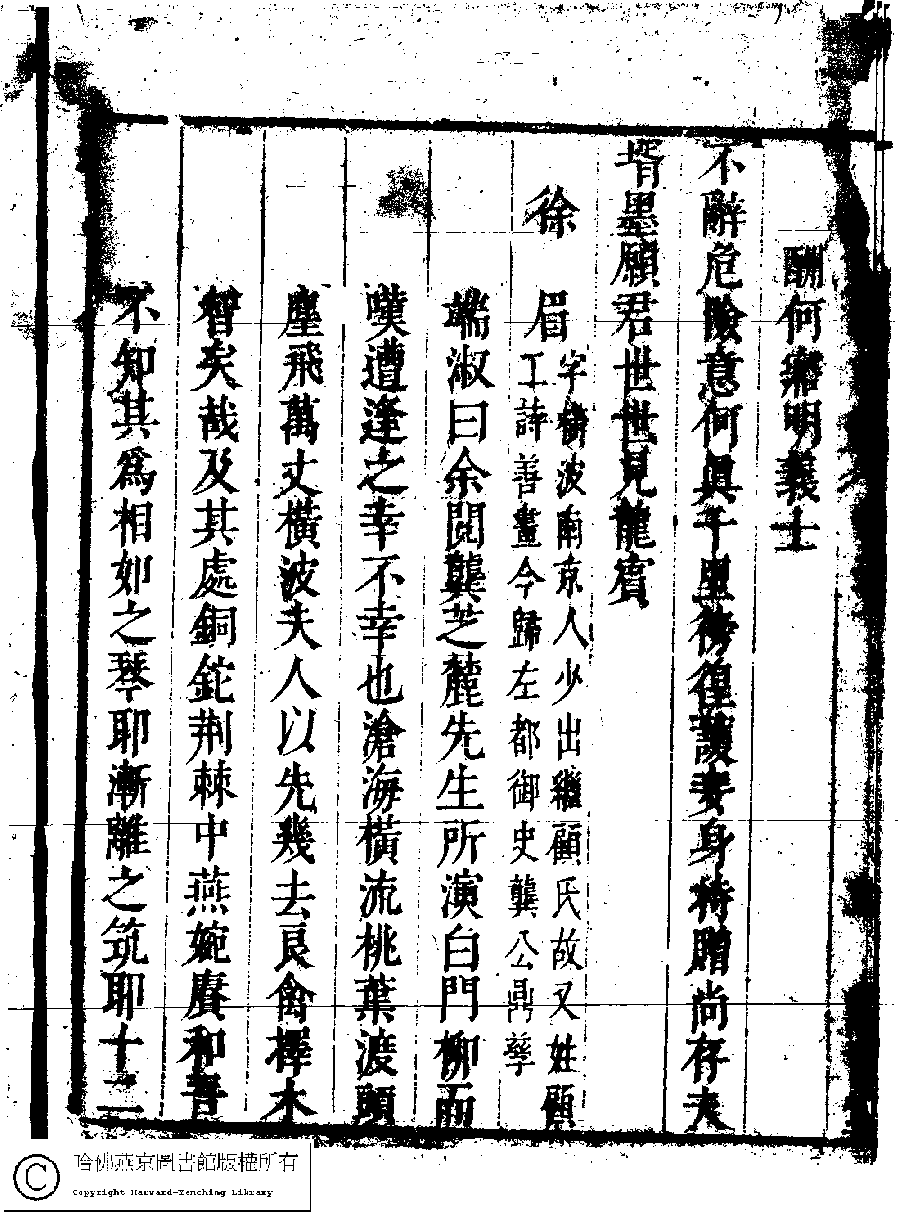 酬何瓘明義士
不辭危險意何眞千里徬徨護妾身持贈尚存夫
壻墨願君世世見龍賓
徐　眉字橫波南京人少出繼顧氏故又姓顧
工詩善畫今歸左都御史龔公鼎孳
端淑曰余閱龔芝麓先生所演白門柳而
嘆遭逢之幸不幸也滄海橫流桃葉渡頭
塵飛萬丈橫波夫人以先幾去良禽擇木
智矣哉及其處銅鉈荆棘中燕婉賡和吾
不知其爲相如之琴耶漸離之筑耶十二
哈佛燕京圖書館版權所有
Copyright Harvard-Yenching Library